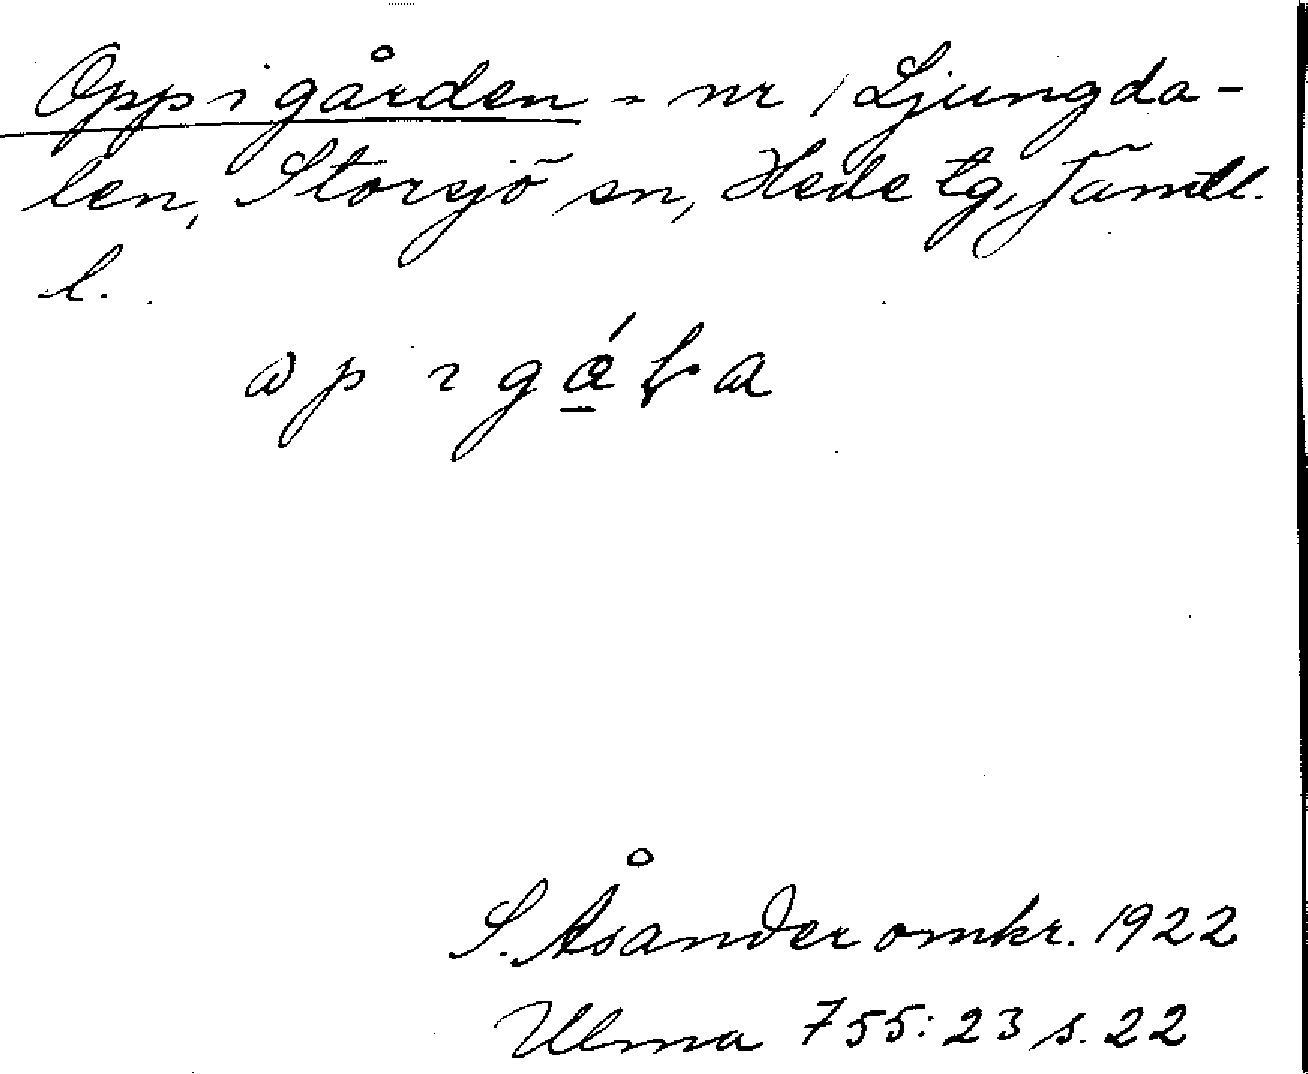 Oppigården - nr 1 Ljungda-
len, Storsjö sn, Hede tg, Jämtl.
l.
S. Åsander omkr. 1922
Ulma 755:23 s. 22